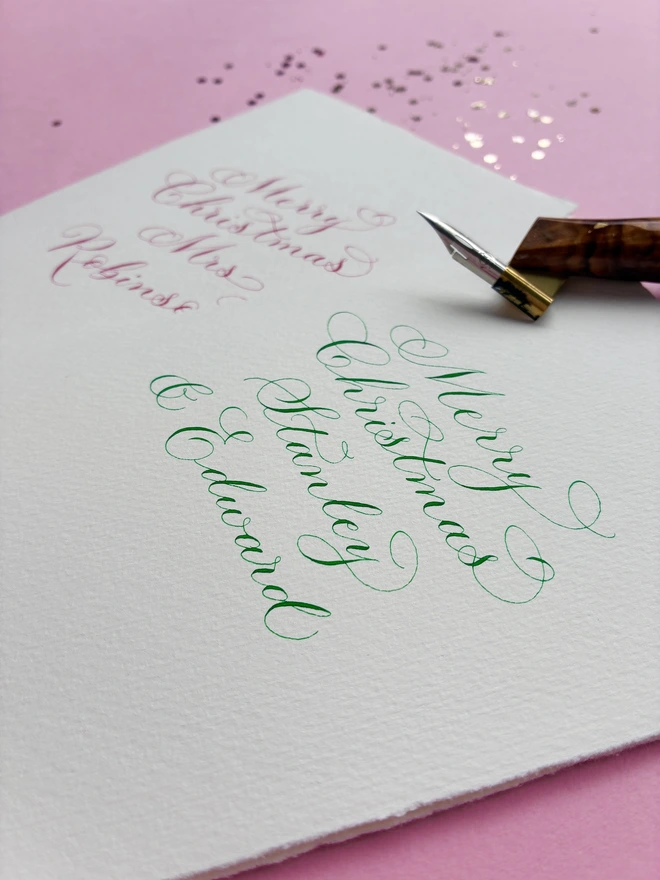 Merry
Christmas
Mrs
Robinso
Merry
Christmas
Stanley
& Edward